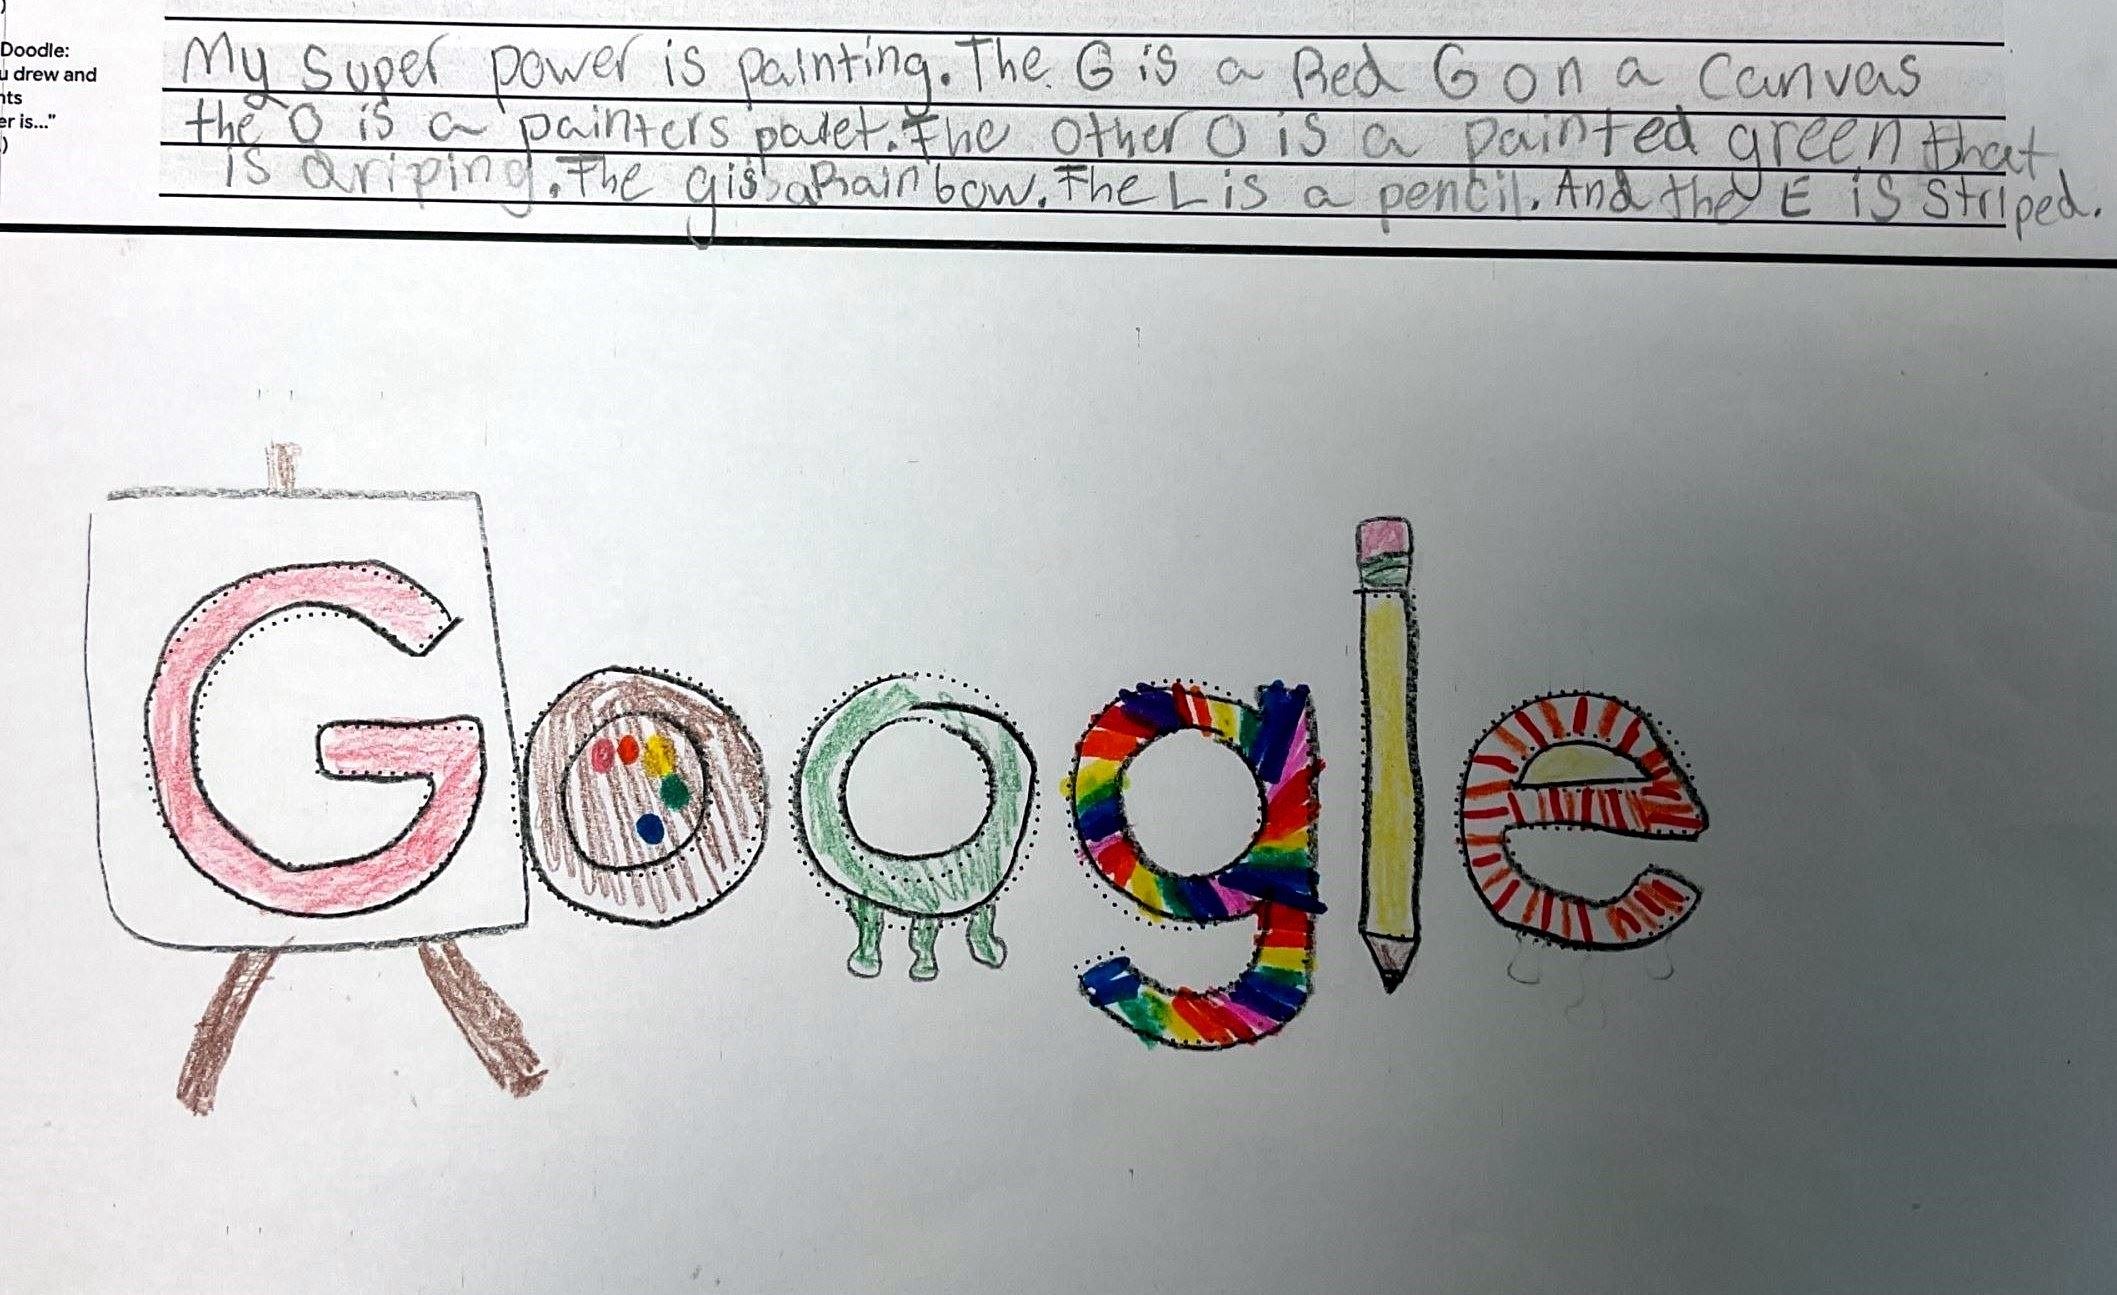 Doodle:
u drew and
nts
er is..."
)
My super power is painting. The G is a Red G on a Canvas
the O is a painters palet. The other O is a painted green that
is driping. The g is a Rainbow. The L is a pencil. And the E is Striped.
Google